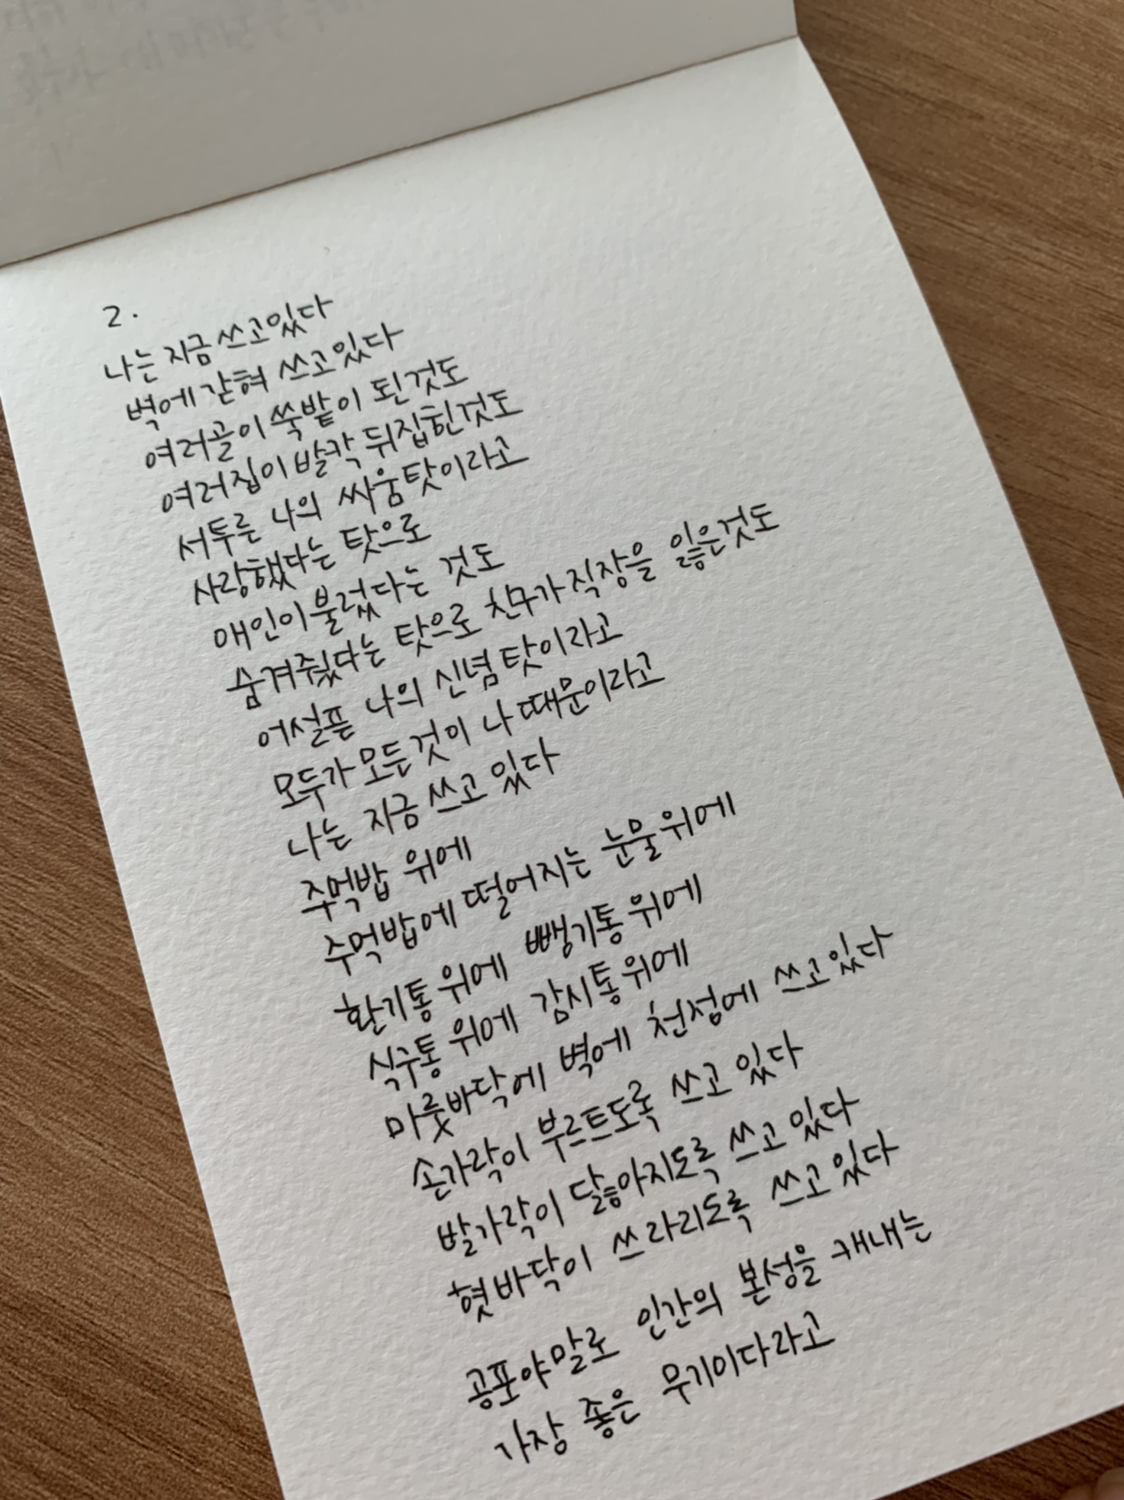 2.
나는 지금 쓰고있다
벽에 갇혀 쓰고있다
여러골이 쑥밭이 된것도
여러집이 발칵 뒤집힌것도
서투른 나의 싸움탓이라고
사랑했다는 탓으로
애인이 불렀다는 것도
숨겨줬다는 탓으로 친구가 직장을 잃은것도
어설픈 나의 신념탓이라고
모두가 모든것이 나 때문이라고
나는 지금 쓰고 있다
주먹밥 위에
주먹밥에 떨어지는 눈물위에
환기통 위에 뺑기통 위에
식구통 위에 감시통위에
마룻바닥에 벽에 천정에 쓰고있다
손가락이 부르트도록 쓰고 있다
발가락이 닳아지도록 쓰고 있다
혓바닥이 쓰라리도록 쓰고 있다
공포야말로 인간의 본성을 캐내는
가장 좋은 무기이다라고